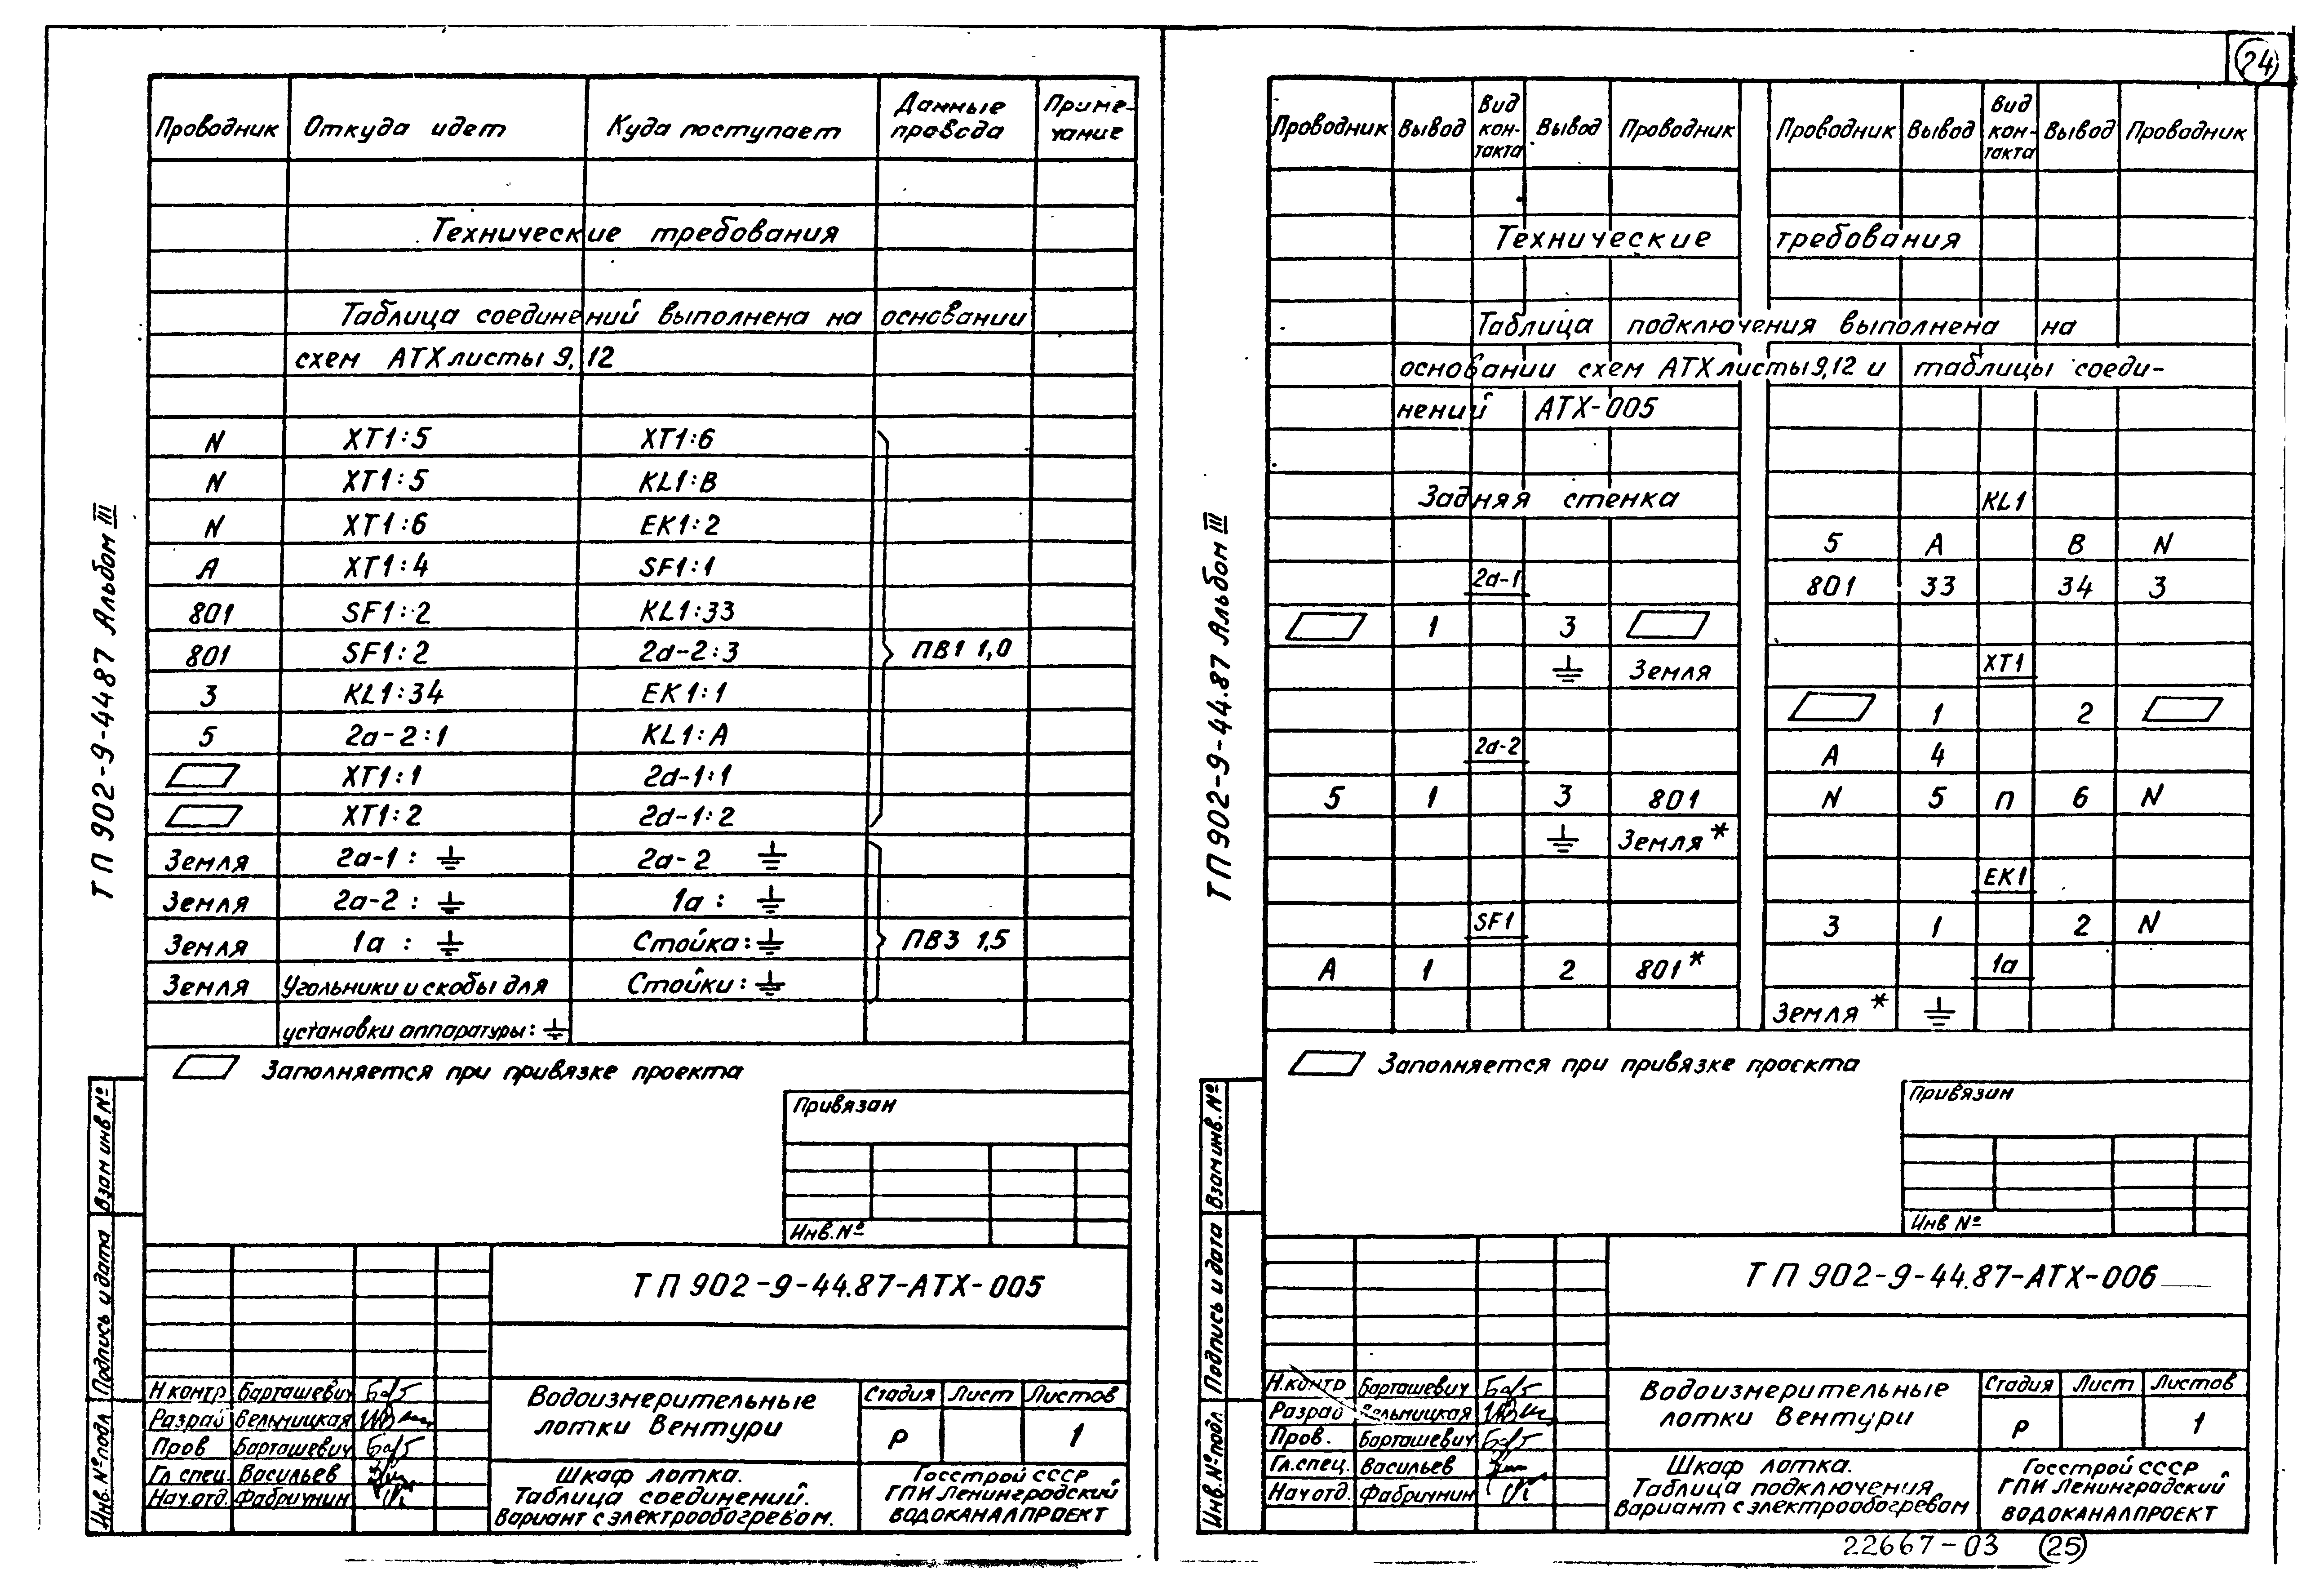 24
ТП 902-9-44 87 Альбом III
Проводник Откуда идет Куда поступает Данные провода Приме-чание
Технические требования
Таблица соединений выполнена на основании
схем АТХ листы 9, 12
N XT1:5 XT1:6
N XT1:5 KL1:B
N XT1:6 EK1:2
A XT1:4 SF1:1
801 SF1:2 KL1:33
801 SF1:2 2а-2:3 ПВ1 1,0
3 KL1:34 EK1:1
5 2а-2:1 KL1:A
XT1:1 2а-1:1
XT1:2 2а-1:2
Земля 2а-1: ⏚ 2а-2 ⏚
Земля 2а-2: ⏚ 1а: ⏚
Земля 1а: ⏚ Стойка: ⏚ ПВ3 1,5
Земля Угольники и скобы для Стойки: ⏚
установки аппаратуры: ⏚
▱ Заполняется при привязке проекта
Привязан
Инв. №
Взам инв №
Подпись и дата
Инв. № подл
ТП 902-9-44.87-АТХ-005
Н контр Барташевич
Разраб Вельницкая
Пров Барташевич
Гл спец. Васильев
Нач.отд. Фабричнин
Водоизмерительные
лотки Вентури
Стадия Лист Листов
Р 1
Шкаф лотка.
Таблица соединений.
Вариант с электрообогревом.
Госстрой СССР
ГПИ Ленинградский
ВОДОКАНАЛПРОЕКТ
ТП 902-9-44.87 Альбом III
Проводник Вывод Вид кон-такта Вывод Проводник Проводник Вывод Вид кон-такта Вывод Проводник
Технические требования
Таблица подключения выполнена на
основании схем АТХ листы 9,12 и таблицы соеди-
нений АТХ-005
Задняя стенка
2а-1
▱ 1 3 ▱
⏚ Земля
2а-2
5 1 3 801
⏚ Земля*
SF1
A 1 2 801*
KL1
5 A B N
801 33 34 3
XT1
▱ 1 2 ▱
A 4
N 5 п 6 N
EK1
3 1 2 N
1а
Земля* ⏚
▱ Заполняется при привязке проекта
Привязан
Инв №
Взам инв. №
Подпись и дата
Инв. № подл
ТП 902-9-44.87-АТХ-006
Н.контр Барташевич
Разраб Вельницкая
Пров. Барташевич
Гл.спец. Васильев
Нач отд. Фабричнин
Водоизмерительные
лотки Вентури
Стадия Лист Листов
Р 1
Шкаф лотка.
Таблица подключения
Вариант с электрообогревом
Госстрой СССР
ГПИ Ленинградский
ВОДОКАНАЛПРОЕКТ
22667-03 25